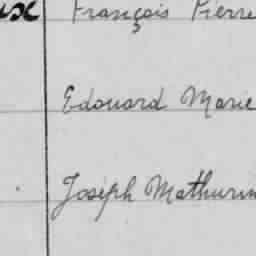 François Pierre
Edouard Marie
Joseph Mathurin